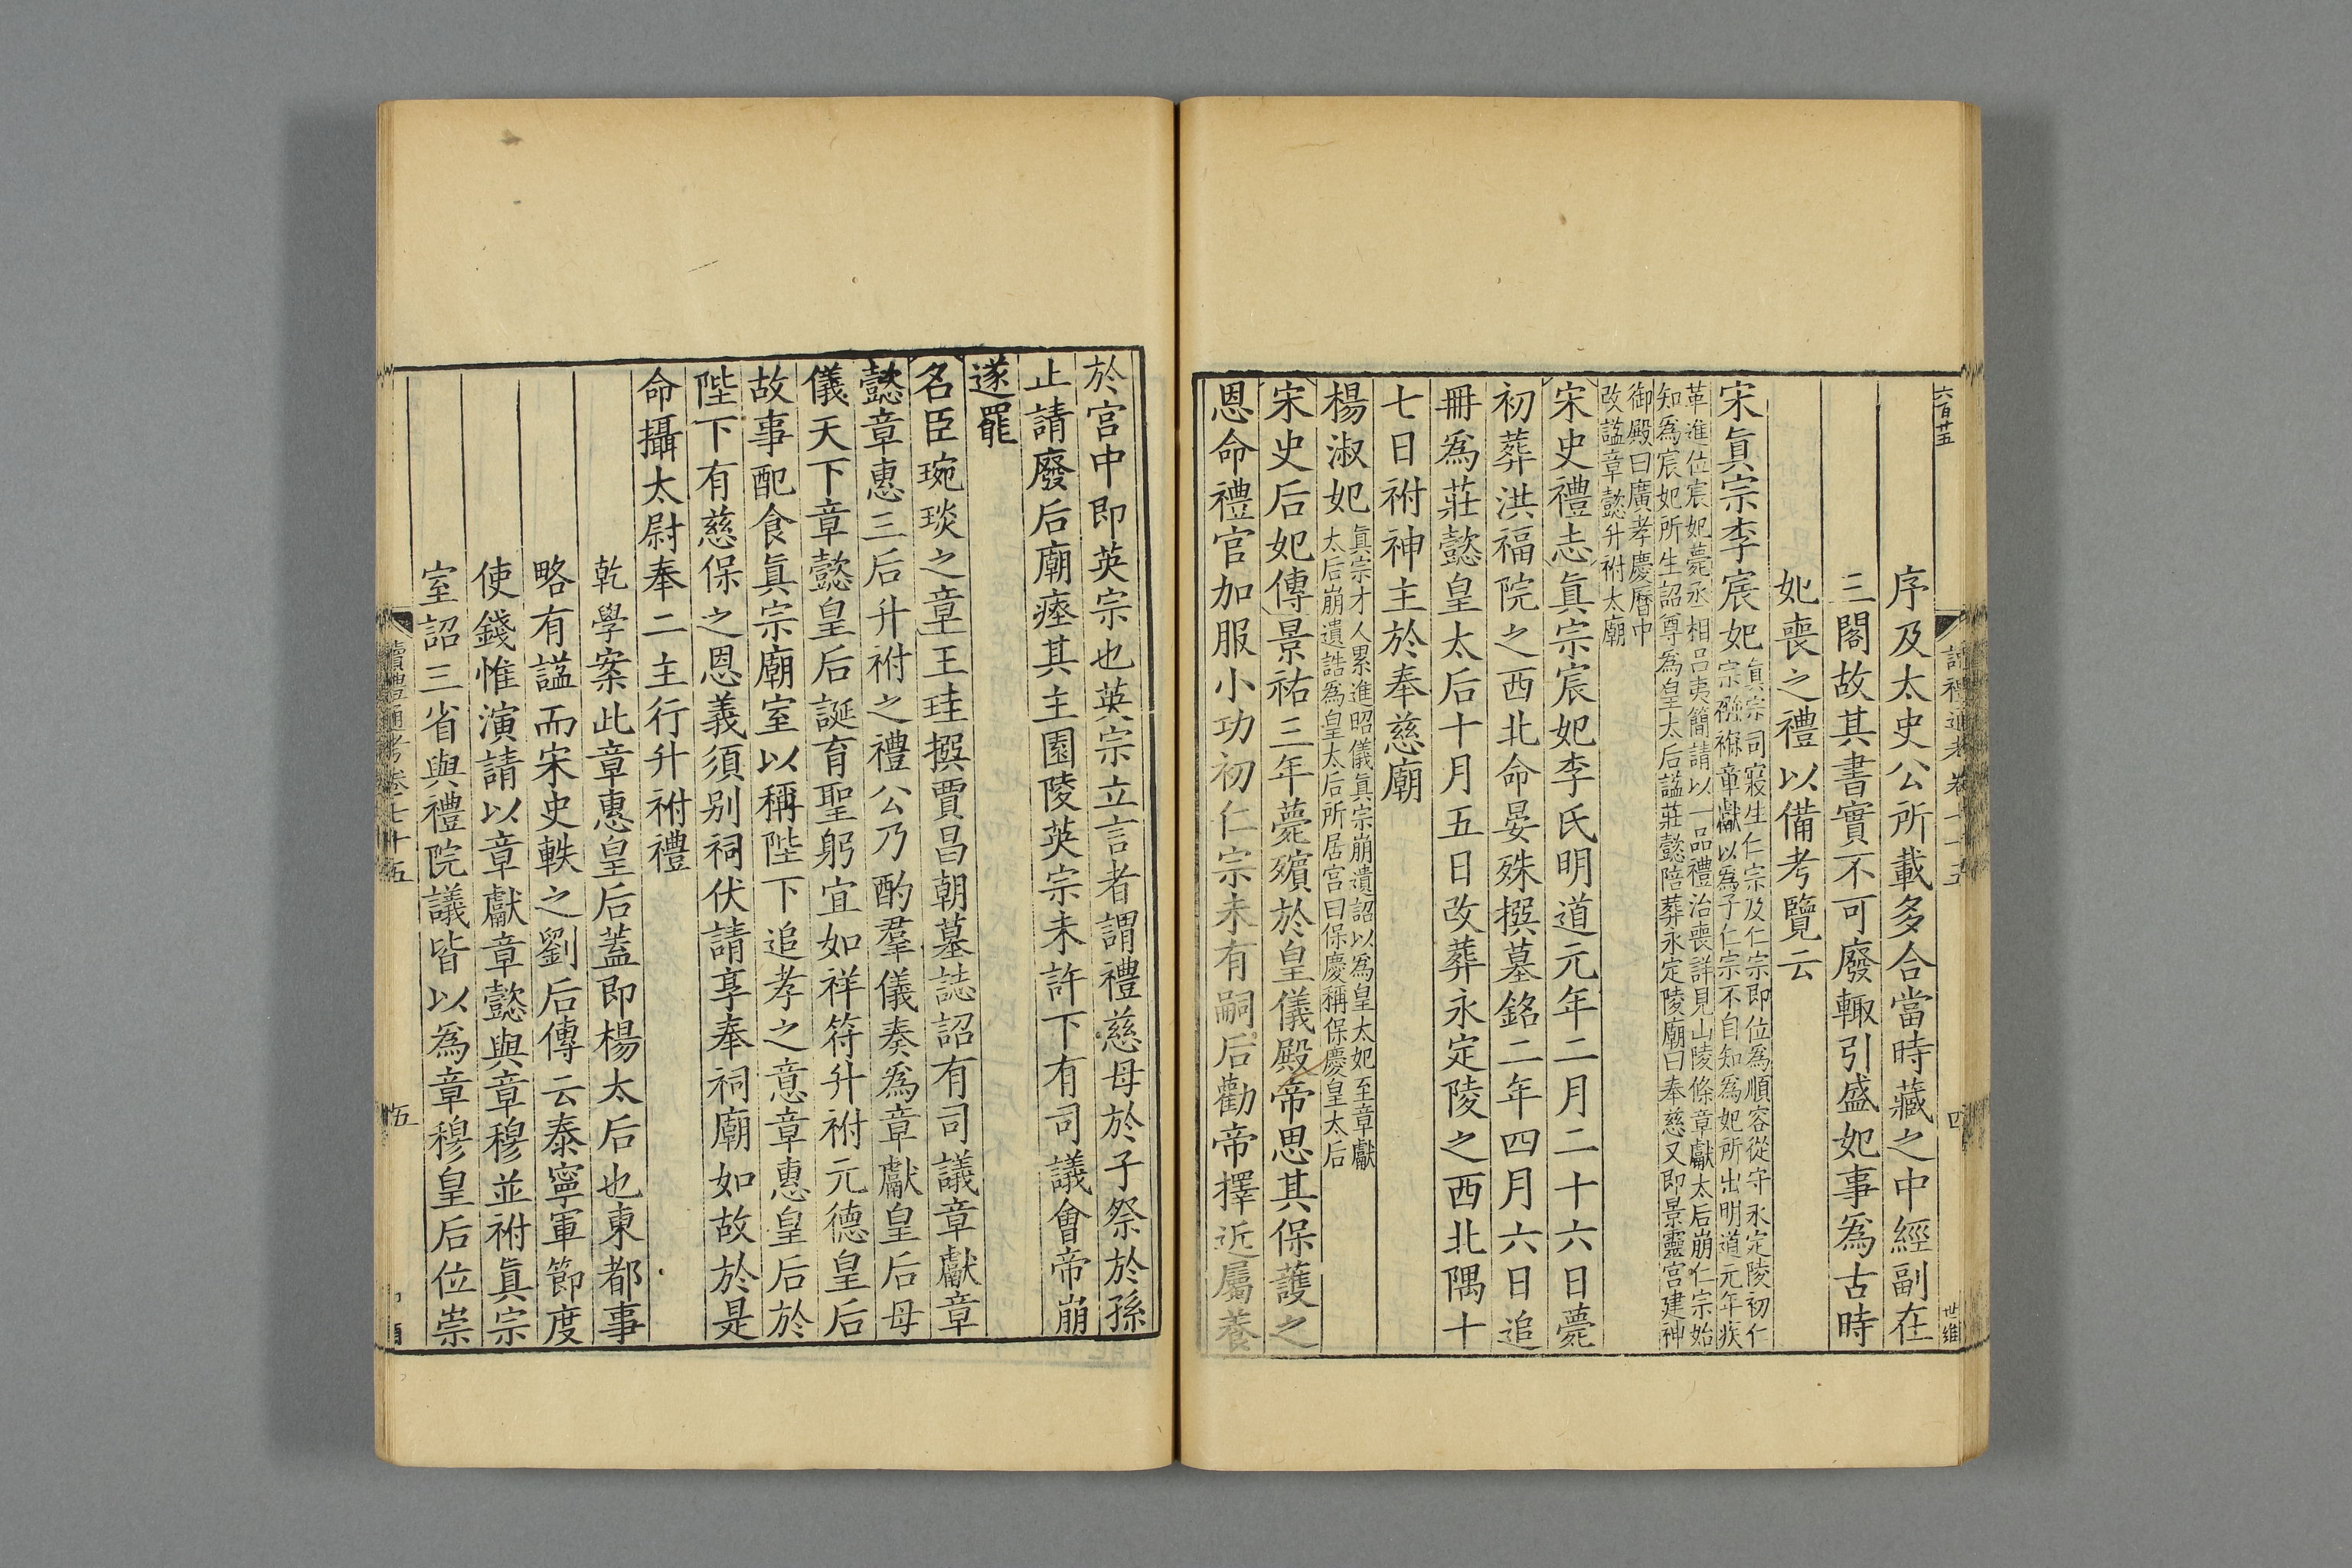 六百廿五
讀禮通考卷七十五
四
世維
序及太史公所載多合當時藏之中經副在
三閣故其書實不可廢輙引盛妃事爲古時
妃喪之禮以備考覽云
宋真宗李宸妃真宗司寢生仁宗及仁宗即位爲順容從守永定陵初仁
宗在襁褓章獻以爲子仁宗不自知爲妃所出明道元年疾
革進位宸妃薨丞相呂夷簡請以一品禮治喪詳見山陵條章獻太后崩仁宗始
知爲宸妃所生詔尊爲皇太后諡莊懿陪葬永定陵廟曰奉慈又即景靈宮建神
御殿曰廣孝慶曆中
改諡章懿升祔太廟
宋史禮志真宗宸妃李氏明道元年二月二十六日薨
初葬洪福院之西北命晏殊撰墓銘二年四月六日追
冊爲莊懿皇太后十月五日改葬永定陵之西北隅十
七日祔神主於奉慈廟
楊淑妃真宗才人累進昭儀真宗崩遺詔以爲皇太妃至章獻
太后崩遺誥爲皇太后所居宮曰保慶稱保慶皇太后
宋史后妃傳景祐三年薨殯於皇儀殿帝思其保護之
恩命禮官加服小功初仁宗未有嗣后勸帝擇近屬養
於宮中即英宗也英宗立言者謂禮慈母於子祭於孫
止請廢后廟瘞其主園陵英宗未許下有司議會帝崩
遂罷
名臣琬琰之章王珪撰賈昌朝墓誌詔有司議章獻章
懿章惠三后升祔之禮公乃酌羣儀奏爲章獻皇后母
儀天下章懿皇后誕育聖躬宜如祥符升祔元德皇后
故事配食真宗廟室以稱陛下追孝之意章惠皇后於
陛下有慈保之恩義須别祠伏請享奉祠廟如故於是
命攝太尉奉二主行升祔禮
乾學案此章惠皇后蓋即楊太后也東都事
略有諡而宋史軼之劉后傳云泰寧軍節度
使錢惟演請以章獻章懿與章穆並祔真宗
室詔三省與禮院議皆以爲章穆皇后位崇
讀禮通考卷七十五
五